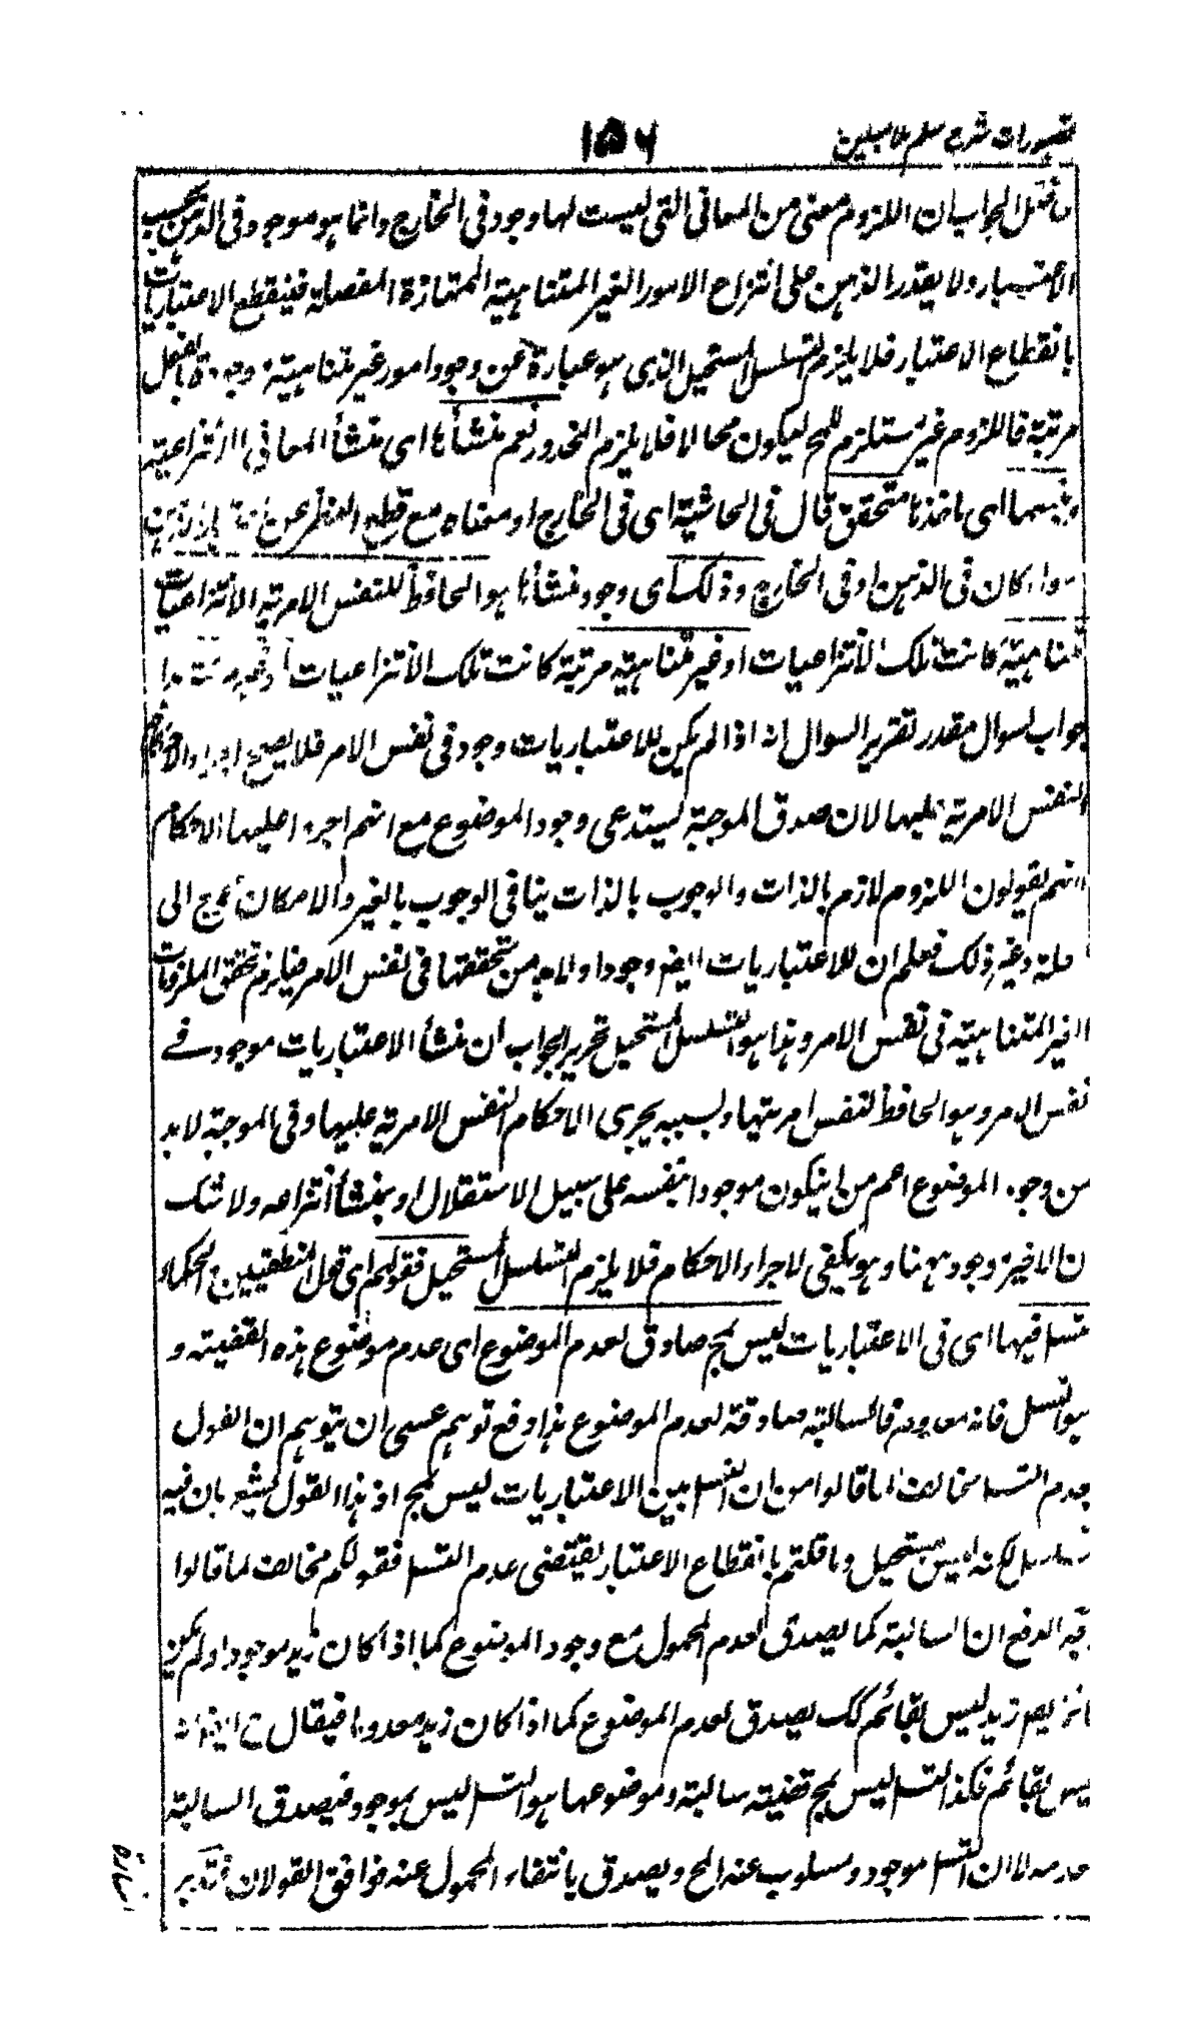 تصورات شرح سلم ملا مبین
١٥٦
الجواب ان اللزوم معنى من المعانى التى ليست لها وجود فى الخارج وانما هو موجود فى الذهن بحسب
الاعتبار ولا يقدر الذهن على انتزاع الامور الغير المتناهية الممتازة المفصلة فينقطع الاعتباريات
بانقطاع الاعتبار فلا يلزم التسلسل المستحيل الذى هو عبارة عن وجود امور غير متناهية موجودة بالفعل
مرتبة فاللزوم غير مستلزم للمح ليكون محالا فلا يلزم المحذور نعم منشأها اى منشأ المعانى الانتزاعية
ومبدؤها اى ماخذها متحقق قال فى الحاشية اى فى الخارج او معناه مع قطع النظر عن
سواء كان فى الذهن او فى الخارج وذلك اى وجود منشأها هو الحافظ للنفس الامرية الانتزاعيات
متناهية كانت تلك الانتزاعيات او غير متناهية مرتبة كانت تلك الانتزاعيات او غير مرتبة هذا
جواب لسوال مقدر تقرير السوال انه اذا لم يكن للاعتباريات وجود فى نفس الامر فلا يصح اجراء الاحكام
النفس الامرية عليها لان صدق الموجبة يستدعى وجود الموضوع مع انهم اجروا عليها الاحكام
انهم يقولون اللزوم لازم بالذات والوجوب بالذات ينافى الوجوب بالغير والامكان محوج الى
علة وغير ذلك فعلم ان للاعتباريات ايضا وجودا ولابد من تحققها فى نفس الامر فيلزم تحقق الملزومات
الغير المتناهية فى نفس الامر وهذا هو التسلسل المستحيل تحرير الجواب ان منشأ الاعتباريات موجود فى
نفس الامر وهو الحافظ لنفس امريتها وبسببه يجرى الاحكام النفس الامرية عليها وفى الموجبة لابد
من وجود الموضوع اعم من ان يكون موجودا بنفسه على سبيل الاستقلال او بمنشأ انتزاعه ولا شك
ان الاخير وجود ههنا وهو يكفى لاجراء الاحكام فلا يلزم التسلسل المستحيل فقولهم اى قول المنطقيين والحكماء
التسلسل فيها اى فى الاعتباريات ليس بمح صادق لعدم الموضوع اى عدم موضوع هذه القضية و
هو التسلسل فانه معدوم فالسالبة صادقة لعدم الموضوع هذا دفع توهم عسى ان يتوهم ان القول
بعدم التسلسل مخالف لما قالوا من ان التسلسل بين الاعتباريات ليس بمح اذ هذا القول يشعر بان فيه
تسلسل لكنه ليس مستحيل وما قلتم بانقطاع الاعتبار يقتضى عدم التسلسل فقولكم مخالف لما قالوا
وجه الدفع ان السالبة كما يصدق لعدم المحمول مع وجود الموضوع كما اذا كان زيد موجودا ولم يكن
قائما يصدق زيد ليس بقائم كك يصدق لعدم الموضوع كما اذا كان زيد معدوما فيقال ح ايضا انه
ليس بقائم فكذا التسلسل ليس بمح قضية سالبة وموضوعها هو التسلسل ليس بموجود فيصدق السالبة
لعدمه لا ان التسلسل موجود ومسلوب عنه المح ويصدق بانتفاء المحمول عنه فوافق القولان فتدبر